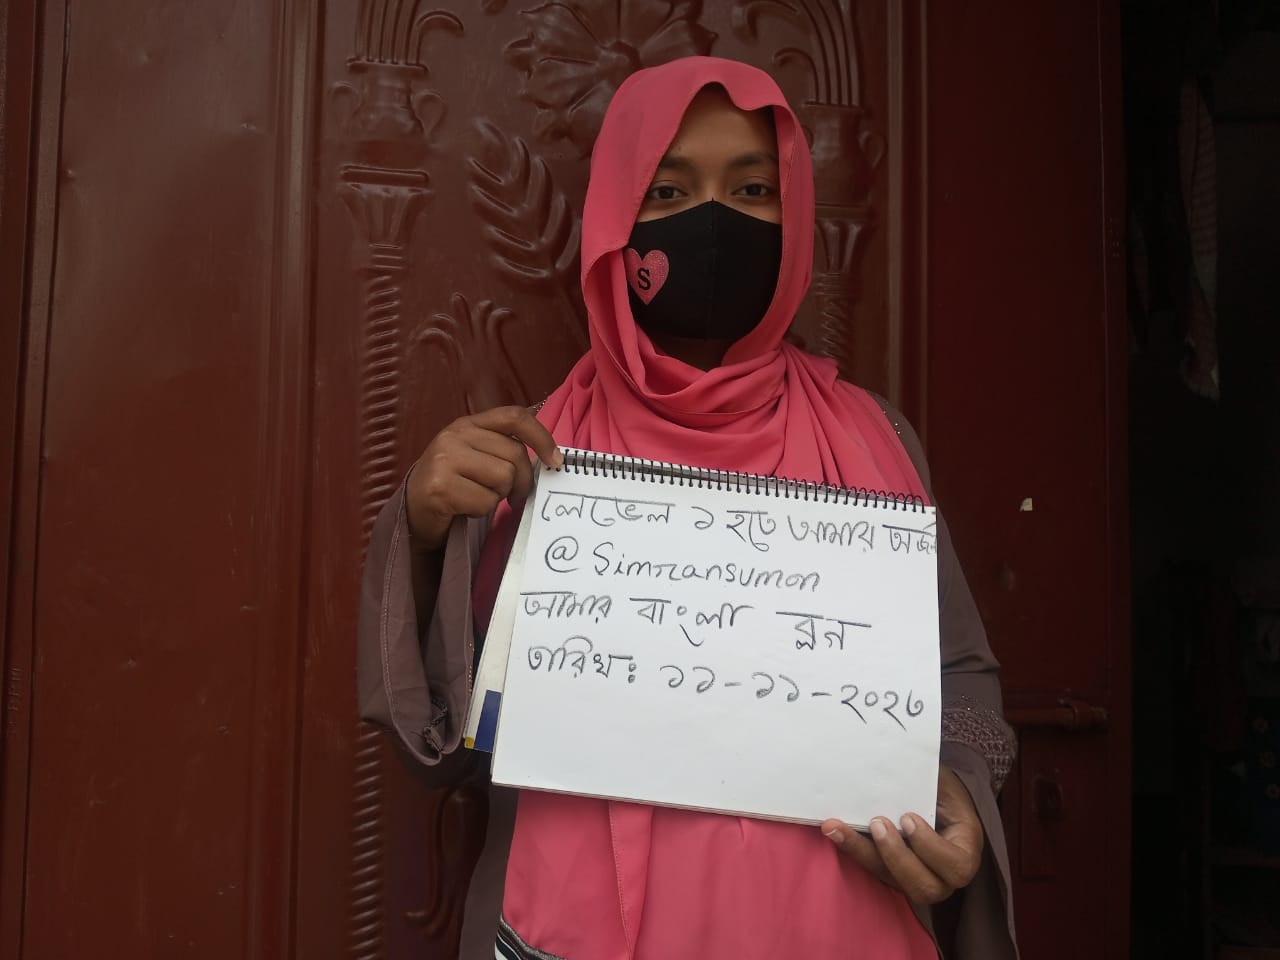 S
লেভেল ১ হতে আমার অর্জন
@Simransumon
আমার বাংলা ব্লগ
তারিখঃ ১১-১১-২০২৩